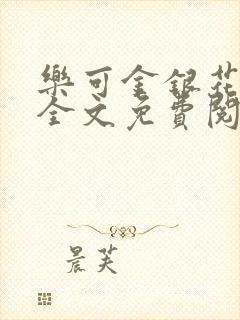 樂可金銀花
全文免費閱
晨芙